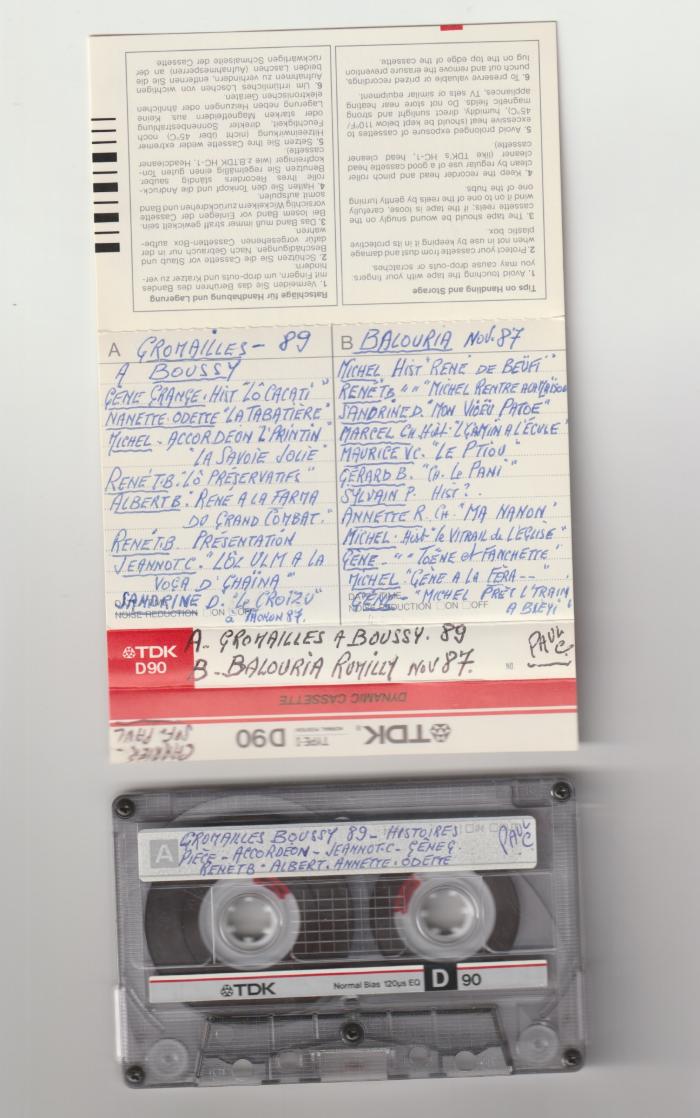 Tips on Handling and Storage
1. Avoid touching the tape with your fingers,
you may cause drop-outs for scratches.
2. Protect your cassette from dust and damage
when not in use by keeping it in its protective
plastic box.
3. The tape should be wound snugly on the
cassette reels; if the tape is loose, carefully
wind it on to one of the reels by gently turning
one of the hubs.
4. Keep the recorder head and pinch roller
clean by regular use of a good cassette head
cleaner (like TDK's HC-1, head cleaner
cassette)
5. Avoid prolonged exposure of cassettes to
excessive heat (should be kept below 110°F/
45°C), humidity, direct sunlight and strong
magnetic fields. Do not store near heating
appliances, TV sets or similar equipment.
6. To preserve valuable or prized recordings,
punch out and remove the erasure prevention
lug on the top edge of the cassette.
Ratschläge für Handhabung und Lagerung
1. Vermeiden Sie das Berühren des Bandes
mit Fingern, um drop-outs und Kratzer zu ver-
hindern.
2. Schützen Sie die Cassette vor Staub und
Beschädigungen. Nach Gebrauch nur in der
dafür vorgesehenen Cassetten-Box aufbe-
wahren.
3. Das Band muß immer straff gewickelt sein.
Bei losem Band vor Einlegen der Cassette
vorsichtig Wickelkern zurückdrehen und Band
somit aufspulen.
4. Halten Sie den Tonkopf und die Andruck-
rolle Ihres Recorders ständig sauber.
Benutzen Sie regelmäßig einen guten Ton-
kopfreiniger (wie z.B. TDK HC-1, Headcleaner
cassette).
5. Setzen Sie Ihre Cassette weder extremer
Hitzeeinwirkung (nicht über 45°C) noch
Feuchtigkeit, direkter Sonnenbestrahlung
oder starken Magnetfeldern aus. Keine
Lagerung neben Heizungen oder ähnlichen
elektronischen Geräten.
6. Um irrtümliches Löschen von wichtigen
Aufnahmen zu verhindern, entfernen Sie die
beiden Laschen (Aufnahmesperren) an der
rückwärtigen Schmalseite der Cassette
A GROMAILLES - 89
A BOUSSY
GÈNE GRANGE. HIST "LÔ CACATI"
NANETTE-ODETTE "LA TABATIÈRE"
MICHEL - ACCORDÉON L'PRINTIN"
"LA SAVOIE JOLIE"
RENÉ T.B. "LÔ PRÉSERVATIFS"
ALBERT B. "RENÉ A LA FARMA
DU GRAND COMBAT."
RENÉ T.B. PRÉSENTATION
JEANNOT C. "LÔZ ULM A LA
VOGA D'GHAÏNA"
SANDRINE D. "Le CROÏZU"
à THONON 87.
NOISE REDUCTION ON OFF
B BALOURIA NOV. 87
MICHEL HIST "RENÉ DE BEÛFI"
RENÉ T.B. " " "MICHEL RENTRE A LA MAISON
SANDRINE D. "MON VIGEU PATOE"
MARCEL CH. Hist "L'GAMIN A L'ÉCULE"
MAURICE V.C. "LE PTIOU"
GÉRARD B. "CH. LE PANI"
SYLVAIN P. HIST ?.
ANNETTE R. CH. "MA NANON"
MICHEL. Hist "le VITRAIL de L'EGLISE"
GÈNE - " " "TOÈNE et FANCHETTE"
MICHEL "GÈNE A LA FÈRA --"
GÈNE - "MICHEL PREZ L'TRAIN
A BLÉYI"
DATE/TIME
NOISE REDUCTION ON OFF
TDK
D90
A - GROMAILLES A BOUSSY. 89
B - BALOURIA RUMILLY NOV 87.
NO
PAUL C.
DYNAMIC CASSETTE
TDK TYPE I NORMAL POSITION D90
PAUL
A
GROMAILLES BOUSSY 89 - HISTOIRES
PIÈCE - ACCORDÉON - JEANNOT C - GÈNE G.
RENÉ T.B - ALBERT. ANNETTE. ODETTE
PAUL C
TDK Normal Bias 120µs EQ D 90